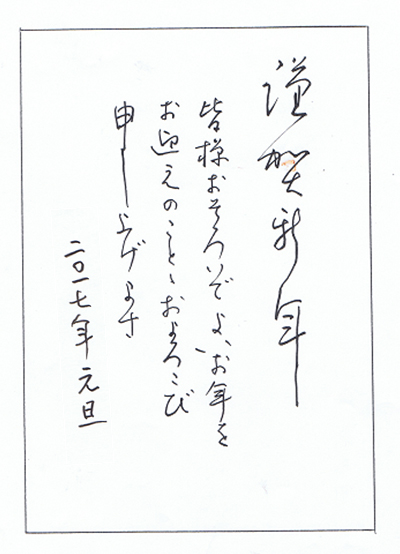 謹賀新年
皆様おそろいでよいお年を
お迎えのこととおよろこび
申し上げます
二〇一七年 元旦